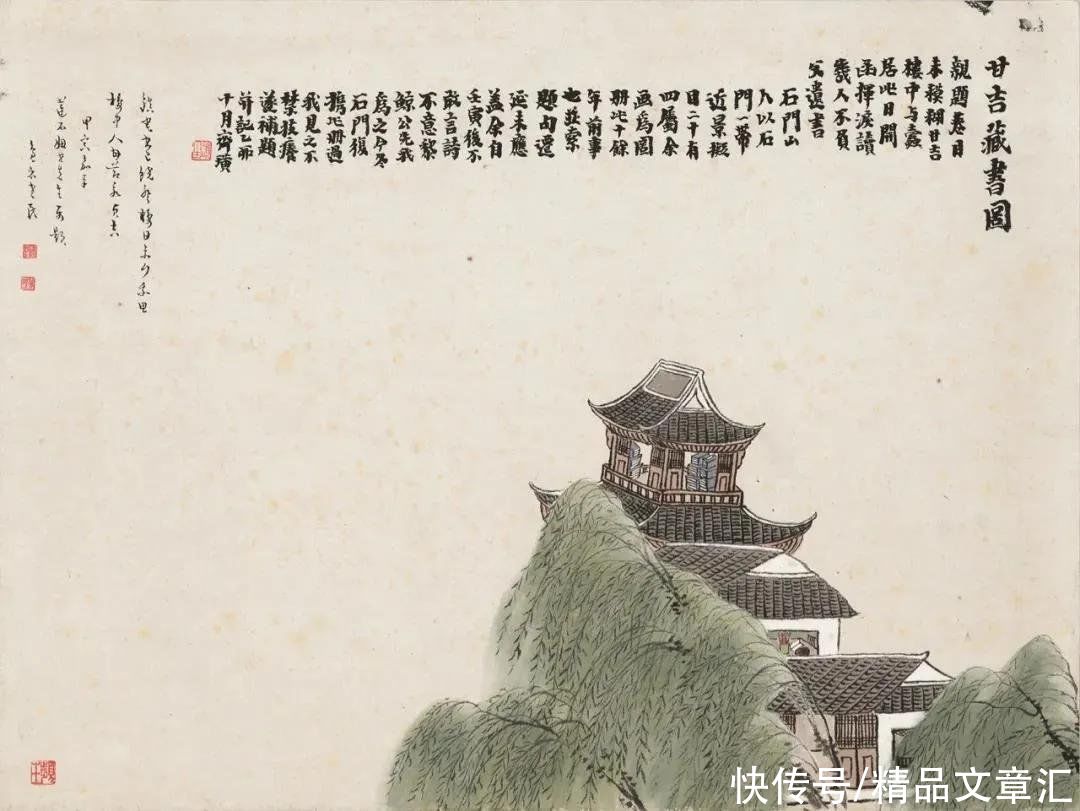 甘吉藏書圖
親題卷目
未模糊甘吉
樓中与蠹
居此日開
函揮淚讀
幾人不負
父遺書
石門山
人以石
門一帶
近景擬
目二十有
四屬余
画為圖
冊此十餘
年前事
也並索
題句還
延未應
蓋余自
壬寅後不
敢言詩
不意黎
鯨公先我
為之今冬
石門復
攜此冊過
我見之不
禁技癢
遂補題
并記乙卯
十月齊璜
甲寅
快传号/精品文章汇